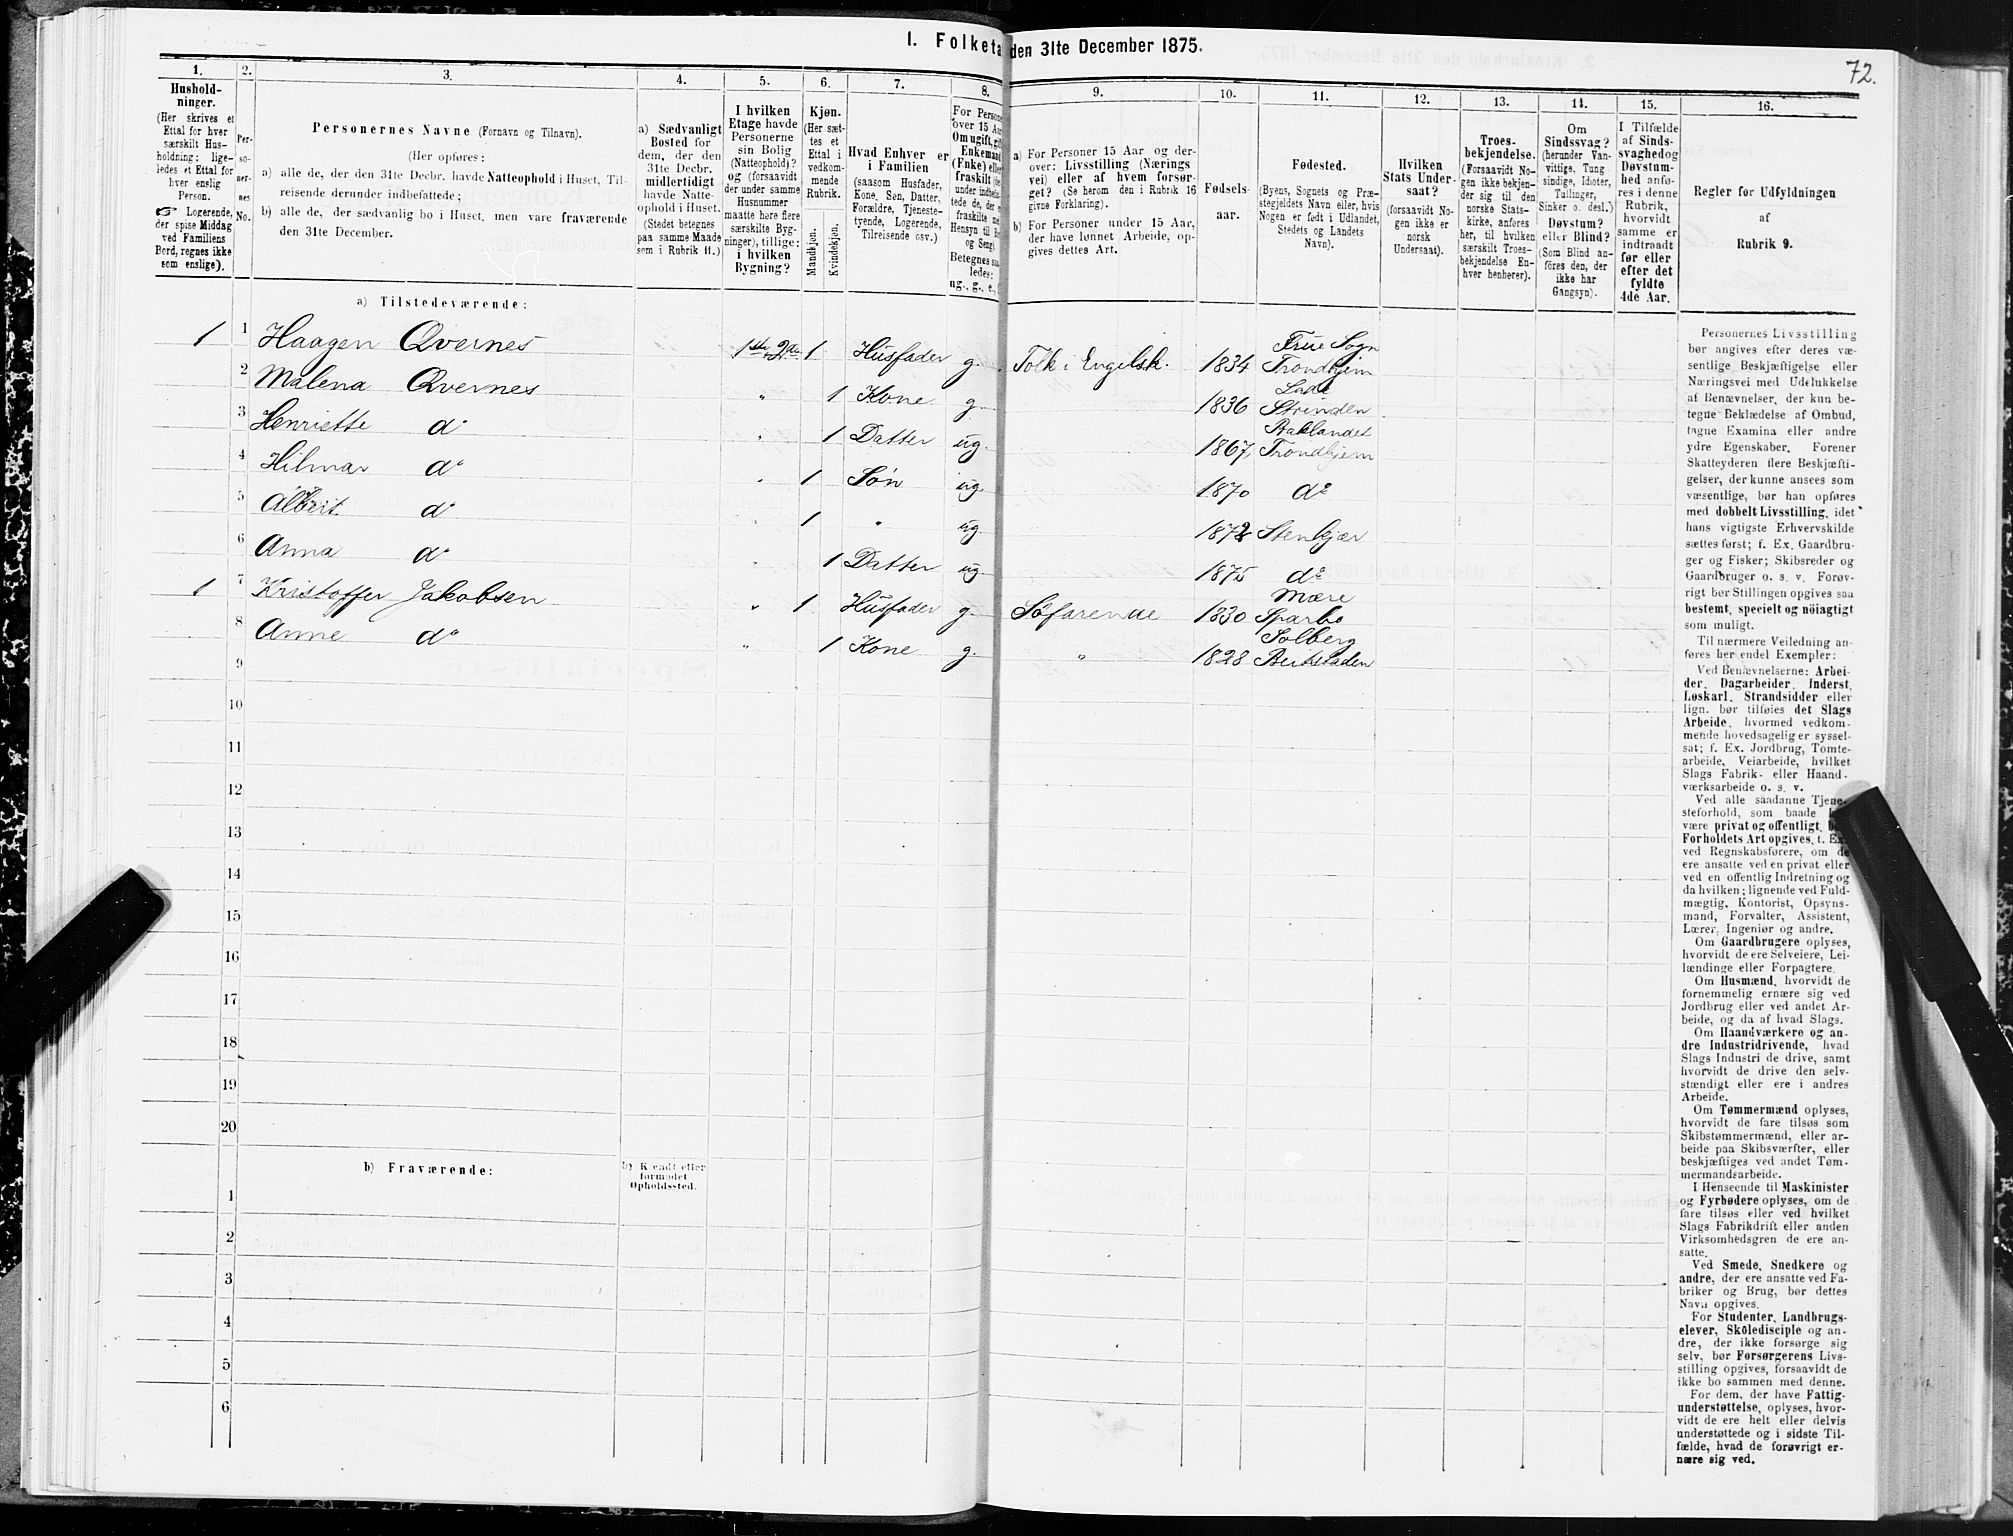 I. Folketa den 31te December 1875.
72.
1.
Hushold-
ninger.
(Her skrives et
Ettal for hver
særskilt Hus-
holdning; lige-
ledes et Ettal for
hver enslig
Person.
☞ Logerende,
der spise Middag
ved Familiens
Bord, regnes ikke
som enslige).
2.
Per-
so-
ner-
nes
No.
3.
Personernes Navne (Fornavn og Tilnavn).
(Her opføres:
a) alle de, der den 31te Decbr. havde Natteophold i Huset, Til-
reisende derunder indbefattede;
b) alle de, der sædvanlig bo i Huset, men vare fraværende
den 31te December.
4.
a) Sædvanligt
Bosted for
dem, der den
31te Decbr.
midlertidigt
havde Natte-
ophold i Huset.
(Stedet betegnes
paa samme Maade
som i Rubrik 11.)
5.
I hvilken
Etage havde
Personerne
sin Bolig
(Natteophold)?
og (forsaavidt
der under samme
Husnummer
maatte være flere
særskilte Byg-
ninger), tillige:
i hvilken
Bygning?
6.
Kjøn.
(Her sæt-
tes et
Ettal i
vedkom-
mende
Rubrik.
Mandkjøn.
Kvindekjøn.
7.
Hvad Enhver er
i Familien
(saasom Husfader,
Kone, Søn, Datter,
Forældre, Tjeneste-
tyende, Logerende,
Tilreisende osv.)
8.
For Persone
over 15 Aa
Om ugift, gif
Enkemand
(Fnke) elle
fraskilt (
under indbe
tede de, de
fraskilte m
Hensyn til Bo
og Seng)
Betegnes saa
ledes:
ug., g., e.,
9.
a) For Personer 15 Aar og der-
over: Livsstilling (Nærings
vei) eller af hvem forsør-
get? (Se herom den i Rubrik 16
givne Forklaring).
b) For Personer under 15 Aar,
der have lønnet Arbeide, op-
gives dettes Art.
10.
Fødsels-
aar.
11.
Fødested.
(Byens, Sognets og Præ-
stegjeldets Navn eller, hvis
Nogen er født i Udlandet,
Stedets og Landets
Navn).
12.
Hvilken
Stats Under-
saat?
(forsaavidt No-
gen ikke er
norsk
Undersaat).
13.
Troes-
bekjendelse.
(Forsaavidt No-
gen ikke bekjen-
der sig til den
norske Stats-
kirke, anføres
her, til hvilken
særskilt Troes-
bekjendelse En-
hver henhører).
14.
Om
Sindssvag?
(herunder Van-
vittige, Tung
sindige, Idioter,
Tullinger,
Sinker o. desl.)
Døvstum?
eller Blind?
(Som Blind an-
føres den, der
ikke har
Gangsyn).
15.
I Tilfælde
af Sinds-
svaghed og
Døvstum-
hed anfø-
res i denne
Rubrik,
hvorvidt
samme er
indtraadt
før eller
efter det
fyldte
4de Aar.
16.
Regler for Udfyldningen
af
Rubrik 9.
a) Tilstedeværende:
1 1 Haagen Qvernes 1 Husfader g. Tolk i Engelsk. 1834 Frue Sogn Trondhjem
2 Malena Qvernes " 1 Kone g 1836 Lade Strinden
3 Henriette do " 1 Datter ug. 1867 Baklandet Trondhjem
4 Hilmar do " 1 Søn ug. 1870 do
5 Albert do " 1 " ug. 1872 Stenkjær
6 Anna do " 1 Datter ug 1875 do
1 7 Kristoffer Jakobsen " 1 Husfader g. Søfarende 1830 Mære Sparbo
8 Anne do " 1 Kone g. " 1828 Solberg Beitstaden
9
10
11
12
13
14
15
16
17
18
19
20
b) Fraværende:
b) Kendt eller
formodet
Opholdssted.
1
2
3
4
5
6
Personernes Livsstilling
bør angives efter deres væ-
sentlige Beskjæftigelse eller
Næringsvei med Udelukkelse
af Benævnelser, der kun be-
tegne Beklædelse af Ombud,
tagne Examina eller andre
ydre Egenskaber. Forener
Skatteyderen flere Beskjæfti-
gelser, der kunne ansees som
væsentlige, bør han opføres
med dobbelt Livsstilling, idet
hans vigtigste Erhvervskilde
sættes først; f. Ex. Gaardbru-
ger og Fisker; Skibsreder og
Gaardbruger o. s. v. Forøv-
rigt bør Stillingen opgives saa
bestemt, specielt og nöiagtigt
som muligt.
Til nærmere Veiledning an-
føres her endel Exempler:
Ved Benævnelserne: Arbei-
der, Dagarbeider, Inderst,
Løskarl, Strandsidder eller
lign. bør tilføies det Slags
Arbeide, hvormed vedkom-
mende hovedsagelig er syssel-
sat; f. Ex. Jordbrug, Tomte-
arbeide, Veiarbeide, hvilket
Slags Fabrik- eller Haand-
værksarbeide o. s. v.
Ved alle saadanne Tjene-
steforhold, som baade
være privat og offentligt,
Forholdets Art opgives, t. Ex.
ved Regnskabsførere, om de
ere ansatte ved en privat eller
ved en offentlig Indretning og
da hvilken; lignende ved Fuld-
mægtig, Kontorist, Opsyns-
mand, Forvalter, Assistent,
Lærer, Ingeniør og andre.
Om Gaardbrugere oplyses,
hvorvidt de ere Selveiere, Lei-
lændinge eller Forpagtere.
Om Husmænd, hvorvidt de
fornemmelig ernære sig ved
Jordbrug eller ved andet Ar-
beide, og da af hvad Slags.
Om Haandværkere og an-
dre Industridrivende, hvad
Slags Industri de drive, samt
hvorvidt de drive den selv-
stændigt eller ere i andres
Arbeide.
Om Tømmermænd oplyses,
hvorvidt de fare tilsøs som
Skibstømmermænd, eller ar-
beide paa Skibsværfter, eller
beskjæftiges ved andet Tøm-
mermandsarbeide.
I Henseende til Maskinister
og Fyrbødere oplyses, om de
fare tilsøs eller ved hvilket
Slags Fabrikdrift eller anden
Virksomhedsgren de ere an-
satte.
Ved Smede, Snedkere og
andre, der ere ansatte ved Fa-
briker og Brug, bør dettes
Navn opgives.
For Studenter, Landbrugs-
elever, Skoledisciple og an-
dre, der ikke forsørge sig
selv, bør Forsørgerens Livs-
stilling opgives, forsaavidt de
ikke bo sammen med denne.
For dem, der have Fattig-
understøttelse, oplyses, hvor-
vidt de ere helt eller delvis
understøttede og i sidste Til-
fælde, hvad de forøvrigt er-
nære sig ved.